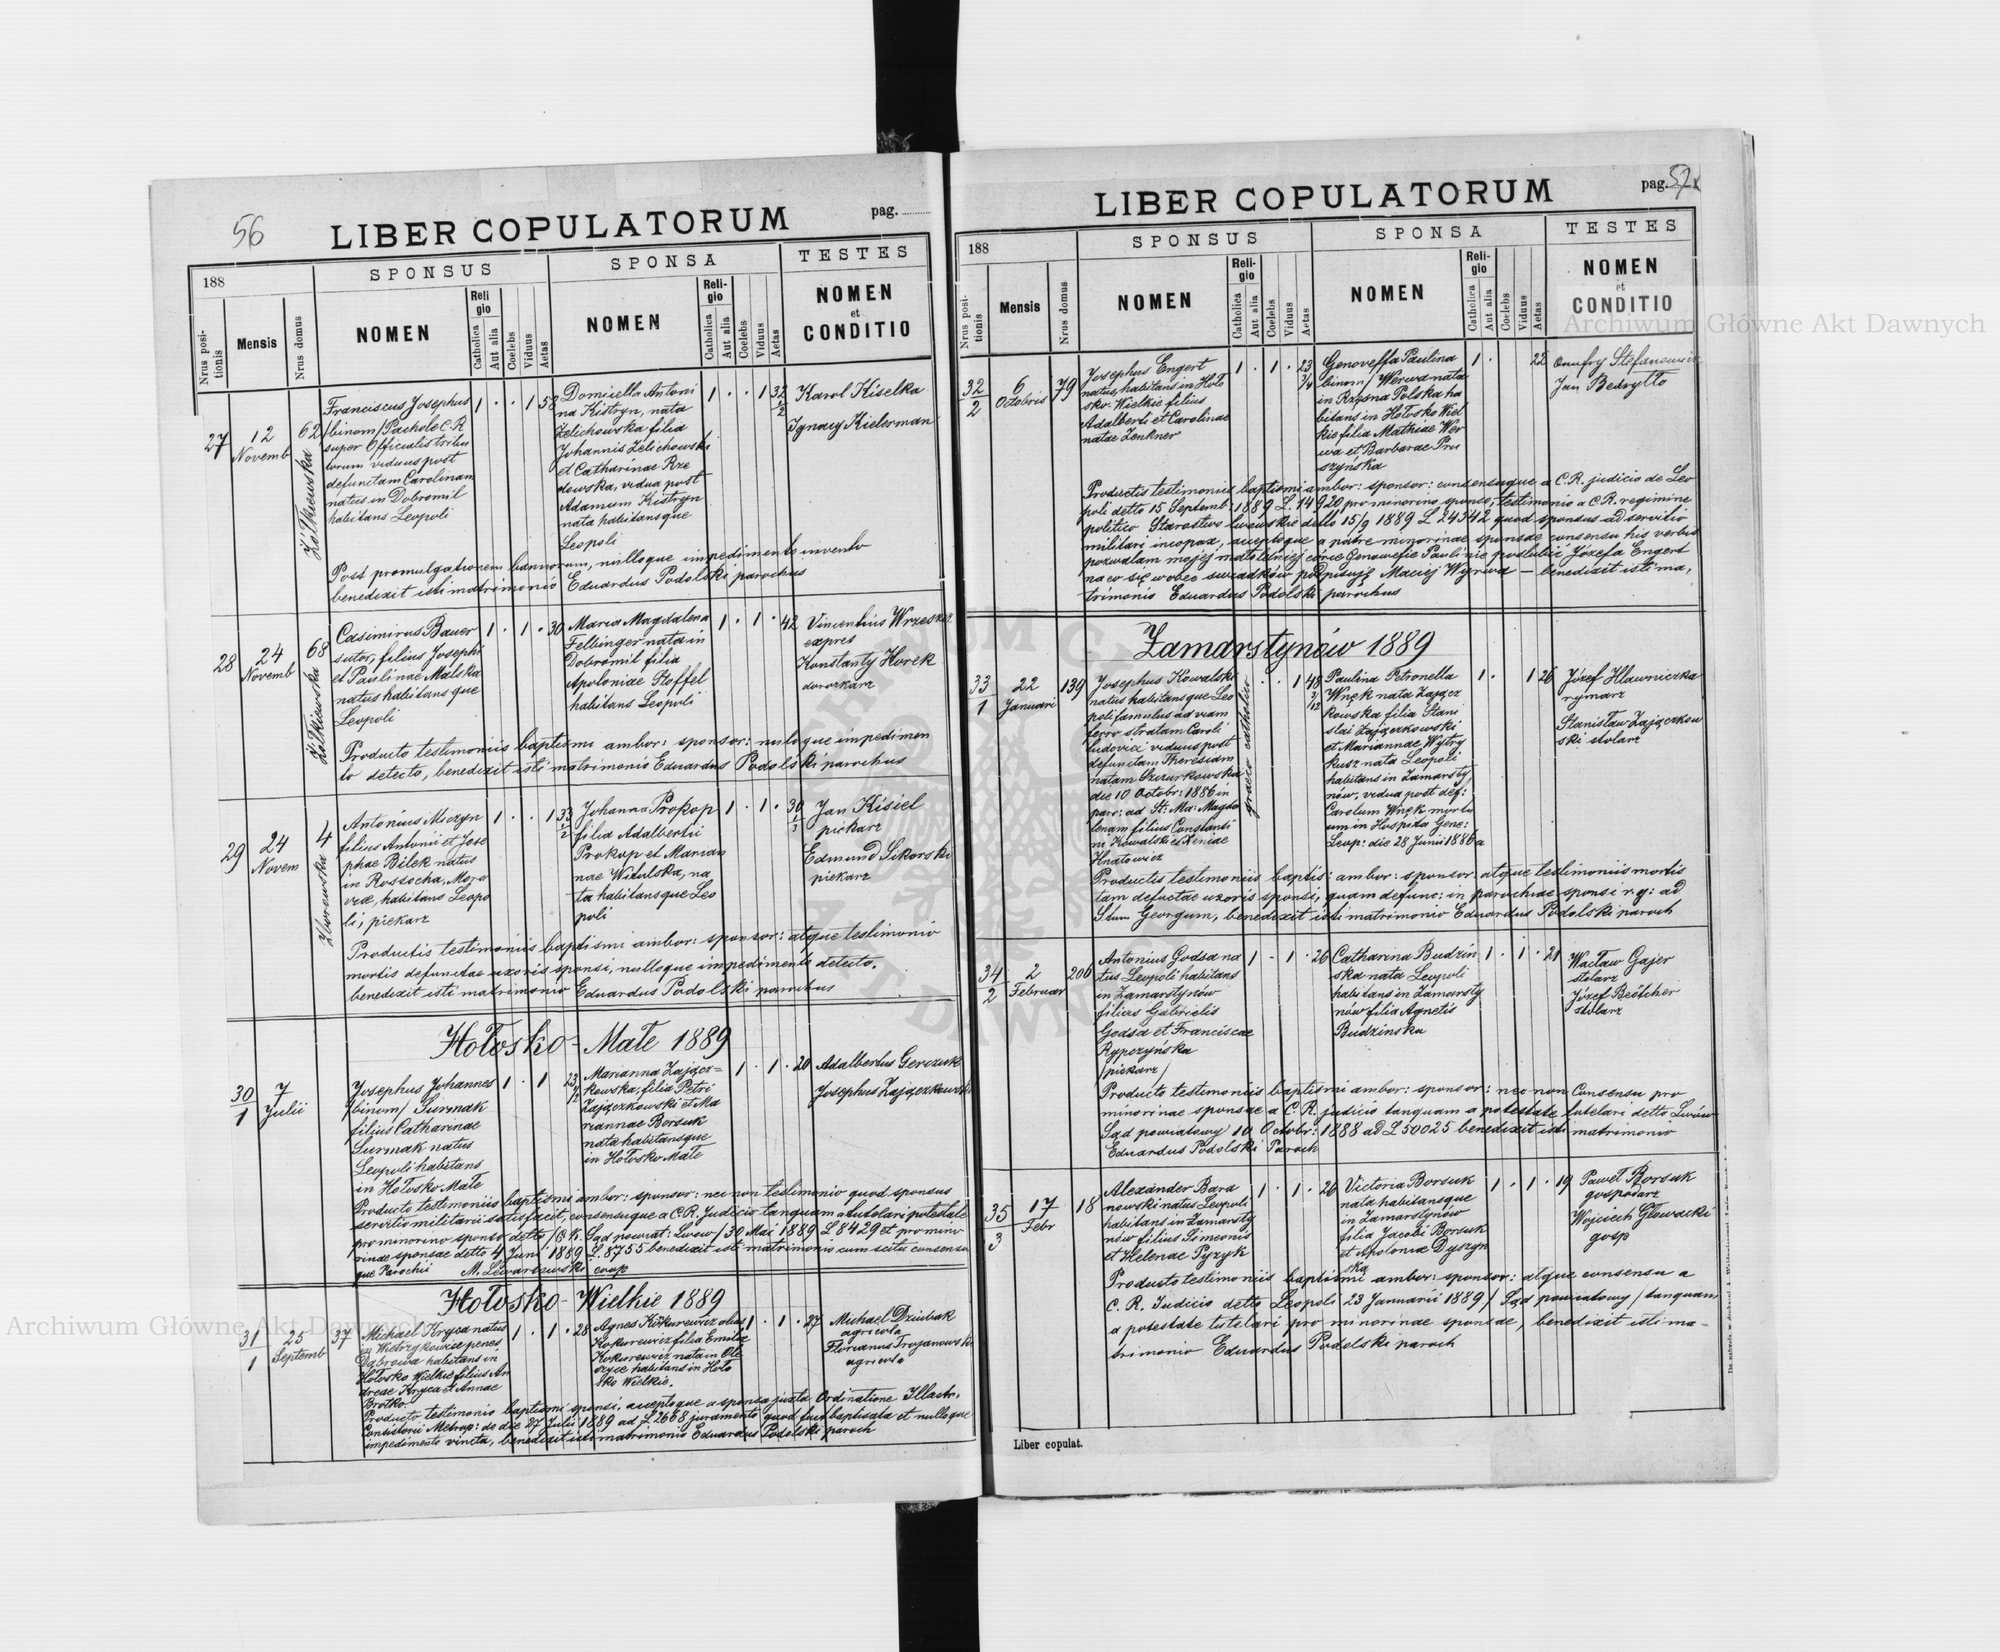 56
LIBER COPULATORUM
pag.
188
SPONSUS
SPONSA
TESTES
Nrus positionis
Mensis
Nrus domus
NOMEN
Religio
Catholica
Aut alia
Coelebs
Viduus
Aetas
NOMEN
Religio
Catholica
Aut alia
Coelebs
Viduus
Aetas
NOMEN
et
CONDITIO
27
12
Novemb
62
Żółkiewska
Franciscus Josephus
/binom/ Pachole C.R
super Officialis tribu
torum viduus post
defunctam Carolinam
natus in Dobromil
habitans Leopoli
1 . . 1 58
Domicella Antoni
na Kistryn, nata
Zelichowska filia
Johannis Zelichowski
et Catharinae Rze
dowska, vidua post
Adamum Kistryn
nata habitansque
Leopoli
1 . . 1 32 1/2
Karol Kiselka
Ignacy Kielerman
Post promulgationem bannorum, nulloque impedimento invento
benedixit isti matrimonio Eduardus Podolski parochus
28
24
Novemb
68
Żółkiewska
Casimirus Bauer
sutor, filius Josephi
et Paulinae Malska
natus habitansque
Leopoli
1 . 1 . 30
Maria Magdalena
Felbinger nata in
Dobromil filia
Apoloniae Stoffel
habitans Leopoli
1 . 1 . 42
Vincentius
expres
Konstanty Horek
dorożkarz
Producto testimoniis baptismi ambor: sponsor: nuloque impedimen
to detecto, benedixit isti matrimonio Eduardus Podolski parochus
29
24
Novem
4
Zborowska
Antonius Miczyn
filius Antonii et Jose
phae Bilek natus
in Rossocha, Mora
viae, habitans Leopo
li, piekarz
1 . . 1 33 1/2
Johanna Prokop
filia Adalbertii
Prokop et Marian
nae Widulska, na
ta habitansque Leo
poli
1 . 1 . 30 1/3
Jan Kisiel
piekarz
Edmund Sikorski
piekarz
Productis testimoniis baptismi ambor: sponsor: atque testimonio
mortis defunctae uxoris sponsi, nulloque impedimento detecto.
benedixit isti matrimonio Eduardus Podolski parochus
Hołosko-Małe 1889
30
1
7
Julii
Josephus Johannes
/binom/ Surmak
filius Catharinae
Surmak natus
Leopoli habitans
in Hołosko Małe
1 . 1 23 1/2
Marianna Zającz=
kowska, filia Petri
Zajączkowski et Ma
riannae Borsuk
nata habitansque
in Hołosko Małe
1 . 1 . 20
Adalbertus Gerczuk
Josephus Zajączkowski
Producto testimoniis baptismi ambor: sponsor: nec non testimonio quod sponsus
servitio militari satisfecit, consensuque a C.R. Judicio tanquam a tutelari potestate
pro minorino sponso detto /C.K. Sąd powiat: Lwów/ 30 Mai 1889 L 8429 et pro mino
rinae sponsae detto 4 Juni 1889 L. 8755 benedixit isti matrimonio cum scitu consensu
que Parochii M. Lewandowski coop
Hołosko-Wielkie 1889
31
1
25
Septemb
37
Michael Kryca natus
in Wietrzykowice penes
Dąbrowa habitans in
Hołosko Wielkie filius An
dreae Kryca et Annae
Brotko.
1 . 1 . 28
Agnes Kokurewicz alias
Kokurewicz filia Emilia
Kokurewicz nata in Ole
szyce habitans in Holo
sko Wielkie.
1 . 1 . 27
Michael Dziubak
agricola
Florianus Trojanowski
agricola
Producto testimonio baptismi sponsi, acceptoque a sponsa juxta Ordinatione Illustr.
Consistorii Metrop: de die 27 Julii 1889 ad L 2668 juramento quod fuit baptisata et nulloque
impedimento vincta, benedixit isti matrimonio Eduardus Podolski paroch
LIBER COPULATORUM
pag. 57
188
SPONSUS
SPONSA
TESTES
Nrus positionis
Mensis
Nrus domus
NOMEN
Religio
Catholica
Aut alia
Coelebs
Viduus
Aetas
NOMEN
Religio
Catholica
Aut alia
Coelebs
Viduus
Aetas
NOMEN
et
CONDITIO
32
2
6
Octobris
79
Josephus Engert
natus, habitans in Hoło
sko-Wielkie filius
Adalberti et Carolinae
natae Zenkner
1 . 1 . 23 3/4
Genoveffa Paulina
binom/ Werwa nata
in Rzęsna Polska ha
bitans in Hołosko Wiel
kie filia Mathiae Wer
wa et Barbarae Pru
szyńska
1 . 22
Onufry Stefanowicz
Jan Bedryłło
Productis testimoniis baptismi ambor: sponsor: consensuque a C.R. judicio de Leo
poli detto 15 Septemb: 1889 L. 14920 pro minorino sponso, testimonio a C.R. regimine
politico Starostwo lwowskie detto 15/9 1889 L 24342 quod sponsus ad servitio
militari incapax, acceptoque a patre minorinae sponsae consensu his verbis
pozwalam mojej małoletniej córce Genowefie Paulinie poślubić Józefa Engert
na co się wobec świadków podpisuję Maciej Wyrwa — benedixit isti ma,
trimonio Eduardus Podolski parochus
Zamarstynów 1889
33
1
22
Januari
139
Josephus Kowalski
natus habitansque Leo
poli famulus ad viam
ferro stratam Caroli
Ludovici viduus post
defunctam Theresiam
natam Szczurkowska
die 10 Octobr: 1886 in
paro: ad St: Ma: Magda
lenam filius Constanti
ni Kowalski et Xeniae
Hnatowicz
graeco catholica
. . 1 48 2/12
Paulina Petronella
Wnęk nata Zającz
kowska filia Stani
slai Zajączkowski
et Mariannae Wytry
kusz nata Leopoli
habitans in Zamarsty
nów, vidua post def:
Carolum Wnęk mortu
um in Hospita Gene:
Leop: die 28 Junii 1886
1 . 1 26
Józef Hlawniczka
rymarz
Stanisław Zajączkow
ski stolarz
Productis testimoniis baptis: ambor: sponsor: atque testimoniis mortis
tam defuctae uxoris sponsi, quam defunc: in parochiae sponsi r.g: ad
Stum Georgum, benedixit isti matrimonio Eduardus Podolski paroch
34
2
2
Februar
206
Antonius Godsa na
tus Leopoli habitans
in Zamarstynów
filius Gabrielis
Godsa et Franciscae
Rypczyńska
/piekarz/
1 . 1 . 26
Catharina Budzin
ska nata Leopoli
habitans in Zamarsty
nów filia Agnetis
Budzinska
1 . 1 . 21
Wacław Gajer
stolarz
Józef Beötcher
stolarz
Producto testimoniis baptismi ambor: sponsor: nec non Consensu pro
minorinae sponsae a C.R. judicio tanquam a potestate tutelari detto Lwów
Sąd powiatowy 10 Octobr: 1888 ad L 50025 benedixit isti matrimonio
Eduardus Podolski Paroch
35
3
17
Febr
18
Alexander Bara
nowski natus Leopoli
habitans in Zamarsty
nów filius Simeonis
et Helenae Pyzyk
1 . 1 . 26
Victoria Borsuk
nata habitansque
in Zamarstynów
filia Jacobi Borsuk
et Apoloniae Dyszyn
ska
1 . 1 . 19
Paweł Borsuk
gospodarz
Wojciech Głowacki
gosp
Producto testimoniis baptismi ambor: sponsor: atque consensu a
C. R. Judicio detto Leopoli 23 Januarii 1889 / Sąd powiatowy / tanquam
a potestate tutelari pro minorinae sponsae, benedixit isti ma-
trimonio Eduardus Podolski paroch
Liber copulat.
Archiwum Główne Akt Dawnych
Archiwum Główne Akt Dawnych